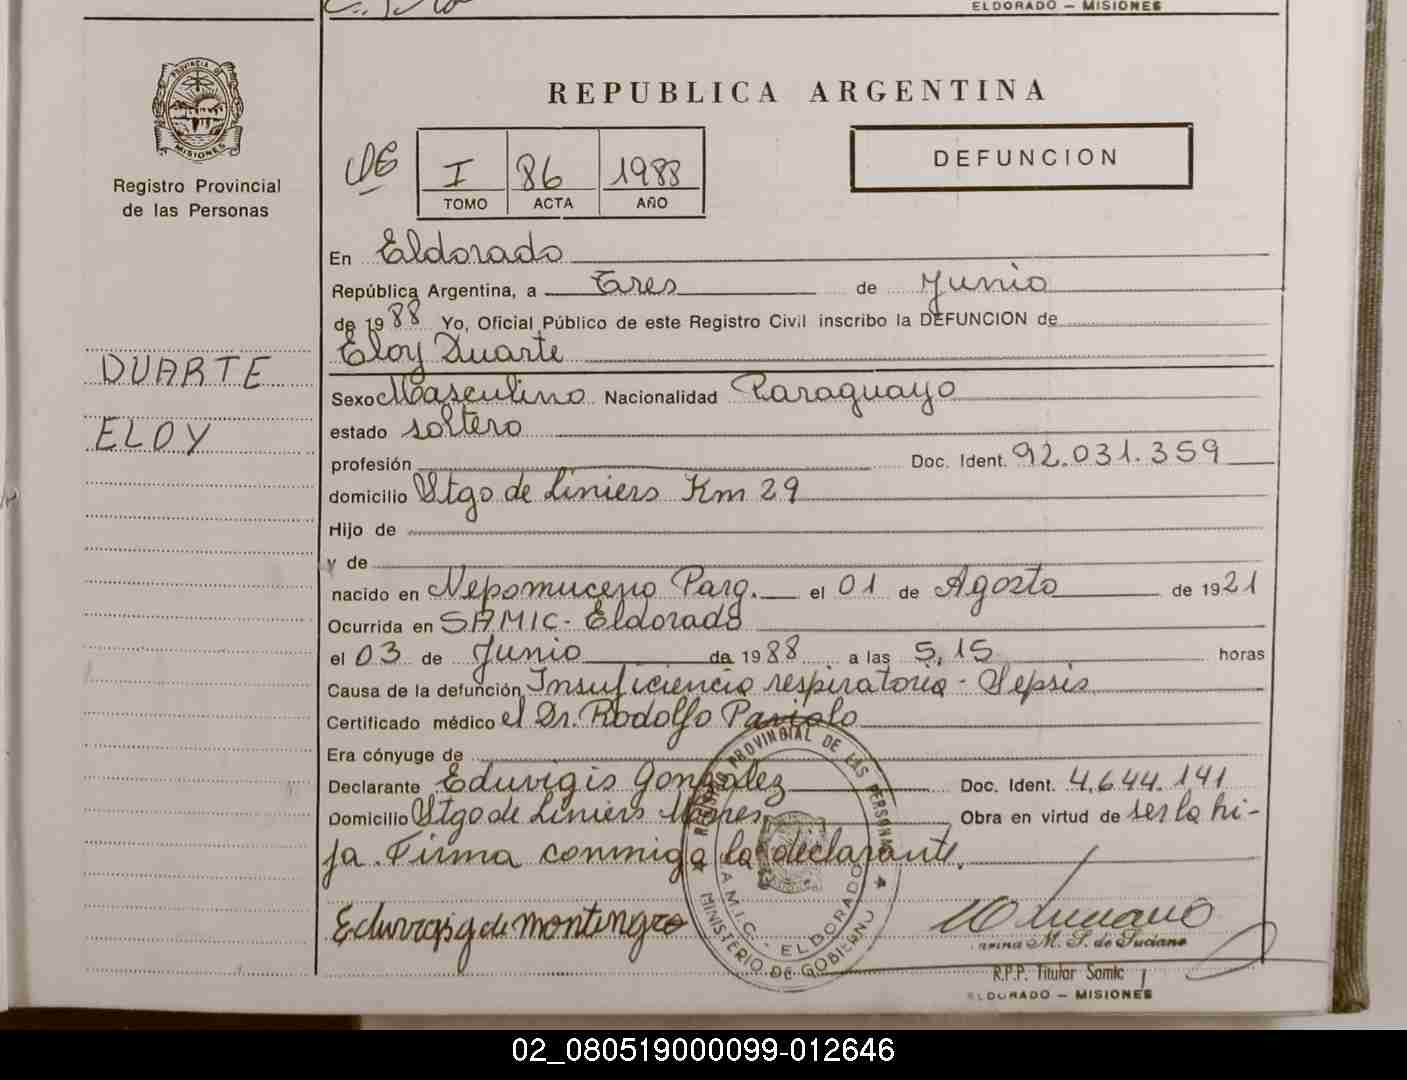 ELDORADO — MISIONES
PROVINCIA DE
MISIONES
Registro Provincial
de las Personas
REPUBLICA ARGENTINA
I 86 1988
TOMO ACTA AÑO
DEFUNCION
En Eldorado
República Argentina, a Tres de Junio
de 1988 Yo, Oficial Público de este Registro Civil inscribo la DEFUNCION de
Eloy Duarte
DUARTE
ELOY
Sexo Masculino Nacionalidad Paraguayo
estado soltero
profesión Doc. Ident. 92.031.359
domicilio Stgo de Liniers Km 29
Hijo de
y de
nacido en Nepomuceno Parg. el 01 de Agosto de 1921
Ocurrida en SAMIC - Eldorado
el 03 de Junio de 1988 a las 5,15 horas
Causa de la defunción Insuficiencia respiratoria - Sepsis
Certificado médico el Dr. Rodolfo
Era cónyuge de
Declarante Eduvigis Gonzalez Doc. Ident. 4.644.141
Domicilio Stgo de Liniers Mnes. Obra en virtud de ser la hi-
ja. Firma conmigo la declarante.
REGISTRO PROVINCIAL DE LAS PERSONAS
S.A.M.I.C. - ELDORADO
MINISTERIO DE GOBIERNO
M. S. de Luciano
R.P.P. Titular Samic
ELDORADO — MISIONES
02_080519000099-012646